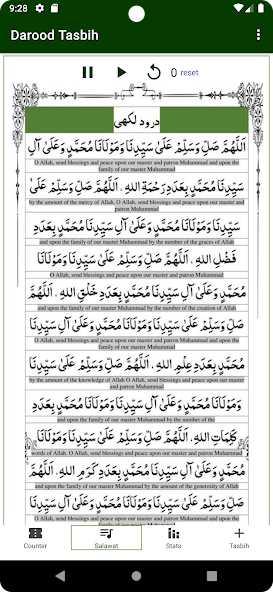 9:28
Darood Tasbih
0 reset
درود لکھی
اَللّٰهُمَّ صَلِّ وَسَلِّمْ عَلَىٰ سَيِّدِنَا وَمَوْلَانَا مُحَمَّدٍ وَعَلَىٰ آلِ
O Allah, send blessings and peace upon our master and patron Muhammad and upon the family of our master Muhammad
سَيِّدِنَا مُحَمَّدٍ بِعَدَدِ رَحْمَةِ اللهِ . اَللّٰهُمَّ صَلِّ وَسَلِّمْ عَلَىٰ
by the amount of the mercy of Allah, O Allah, send blessings and peace upon our master and patron Muhammad
سَيِّدِنَا وَمَوْلَانَا مُحَمَّدٍ وَعَلَىٰ آلِ سَيِّدِنَا مُحَمَّدٍ بِعَدَدِ
and upon the family of our master Muhammad by the number of the graces of Allah
فَضْلِ اللهِ . اَللّٰهُمَّ صَلِّ وَسَلِّمْ عَلَىٰ سَيِّدِنَا وَمَوْلَانَا
O Allah, send blessings and peace upon our master and patron Muhammad
مُحَمَّدٍ وَعَلَىٰ آلِ سَيِّدِنَا مُحَمَّدٍ بِعَدَدِ خَلْقِ اللهِ . اَللّٰهُمَّ
and upon the family of our master Muhammad by the number of the creation of Allah
صَلِّ وَسَلِّمْ عَلَىٰ سَيِّدِنَا وَمَوْلَانَا مُحَمَّدٍ وَعَلَىٰ آلِ سَيِّدِنَا
O Allah, send blessings and peace upon our master and patron Muhammad and upon the family of our master Muhammad
مُحَمَّدٍ بِعَدَدِ عِلْمِ اللهِ . اَللّٰهُمَّ صَلِّ وَسَلِّمْ عَلَىٰ سَيِّدِنَا
by the amount of the knowledge of Allah O Allah, send blessings and peace upon our master and patron Muhammad
وَمَوْلَانَا مُحَمَّدٍ وَعَلَىٰ آلِ سَيِّدِنَا وَمَوْلَانَا مُحَمَّدٍ بِعَدَدِ
and upon the family of our master Muhammad by the number of the
كَلِمَاتِ اللهِ . اَللّٰهُمَّ صَلِّ وَسَلِّمْ عَلَىٰ سَيِّدِنَا وَمَوْلَانَا
words of Allah. O Allah, send blessings and peace upon our master and patron Muhammad
مُحَمَّدٍ وَعَلَىٰ آلِ سَيِّدِنَا مُحَمَّدٍ بِعَدَدِ كَرَمِ اللهِ . اَللّٰهُمَّ
and upon the family of our master Muhammad by the amount of the generosity of Allah
صَلِّ وَسَلِّمْ عَلَىٰ سَيِّدِنَا وَمَوْلَانَا مُحَمَّدٍ وَعَلَىٰ آلِ سَيِّدِنَا
O Allah, send blessings and peace upon our master and patron Muhammad and upon the family of our master Muhammad
Counter
Salawat
Stats
Tasbih